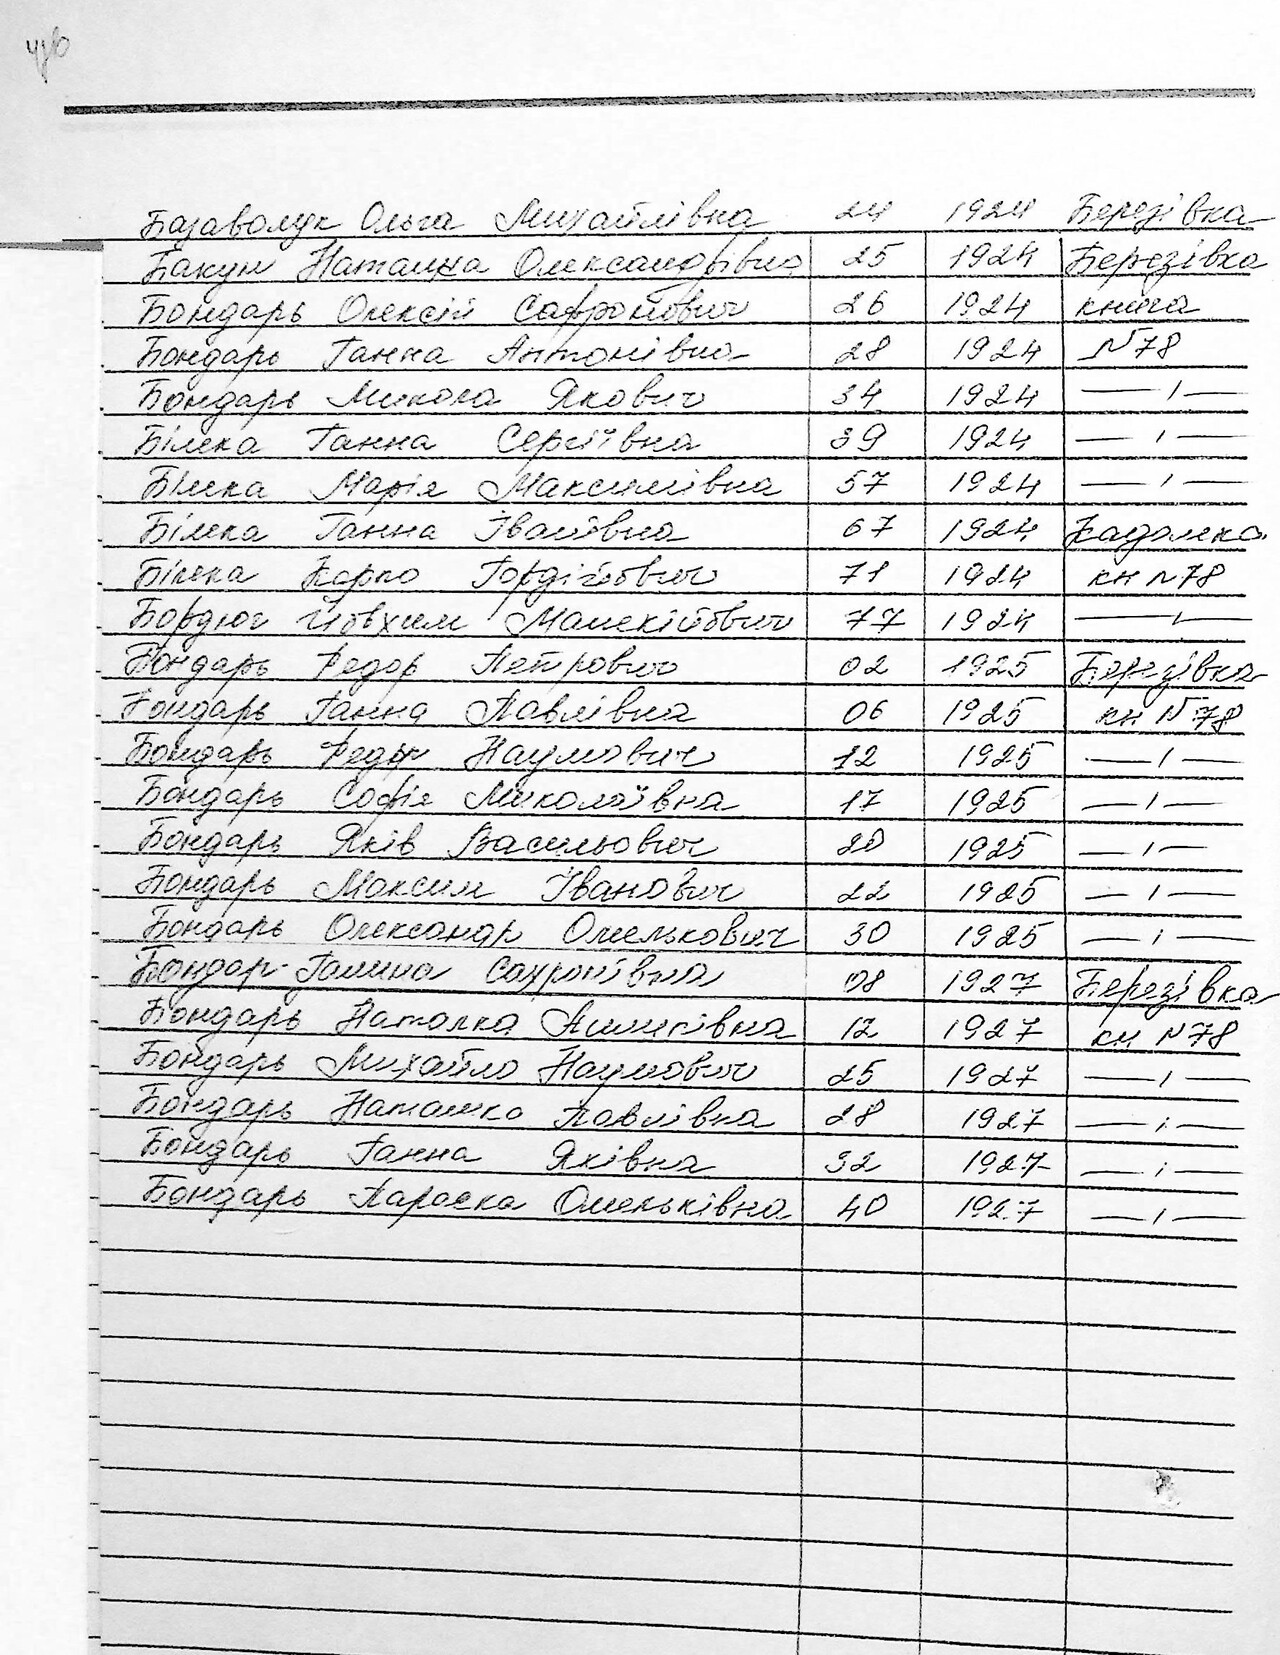 Базавомук Ольга Михайлівна 24 1924 Березівка
Бакун Наталка Олександрівна 25 1924 Березівка
Бондарь Олексій Сафронович 26 1924 книга
Бондарь Ганна Антонівна 28 1924 N78
Бондарь Микола Якович 34 1924 — ı —
Білека Ганна Сергіївна 39 1924 — ı —
Білека Марія Максимівна 57 1924 — ı —
Білека Ганна Іванівна 67 1924
Білека Карпо Гордійович 71 1924 кн N78
Бордюг Йовхим 77 1924 — ı —
Бондарь Федор Петрович 02 1925 Березівка
Бондарь Ганна Павлівна 06 1925 кн N78
Бондарь Федір Наумович 12 1925 — ı —
Бондарь Софія Миколаївна 17 1925 — ı —
Бондарь Яків Васильович 20 1925 — ı —
Бондарь Максим Іванович 22 1925 — ı —
Бондарь Олександр Омелькович 30 1925 — ı —
Бондар Галина Сахронівна 08 1927 Березівка
Бондарь Наталка 12 1927 кн N78
Бондарь Михайло Наумович 25 1927 — ı —
Бондарь Наталка Павлівна 28 1927 — ı —
Бондарь Ганна Яківна 32 1927 — ı —
Бондарь Параска Омельківна 40 1927 — ı —